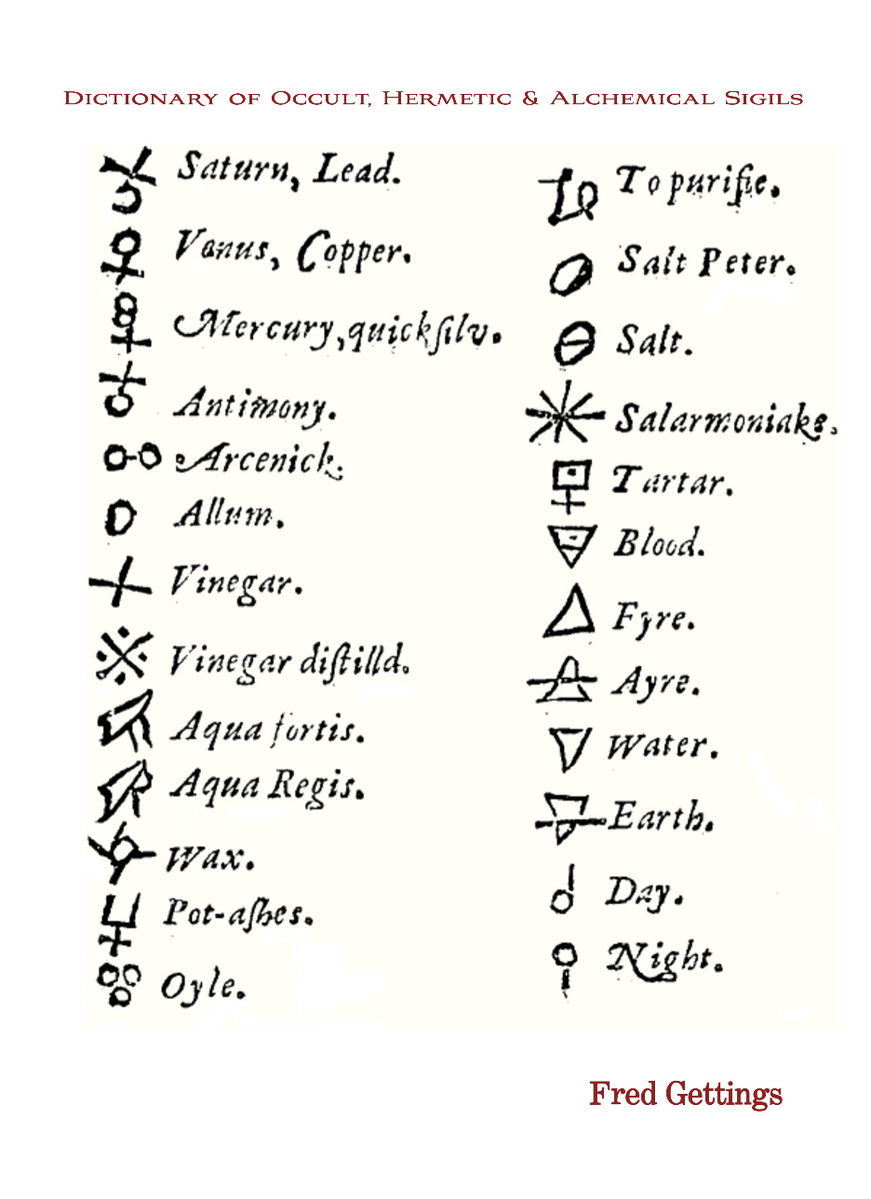 Dictionary of Occult, Hermetic & Alchemical Sigils
Saturn, Lead.
Venus, Copper.
Mercury, quickſilv.
Antimony.
Arcenick.
Allum.
Vinegar.
Vinegar diſtilld.
Aqua fortis.
Aqua Regis.
Wax.
Pot-aſhes.
Oyle.
To purifie.
Salt Peter.
Salt.
Salarmoniake.
Tartar.
Blood.
Fyre.
Ayre.
Water.
Earth.
Day.
Night.
Fred Gettings